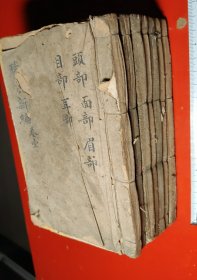 頭部 面部 眉部
目部 耳部
新編卷壹